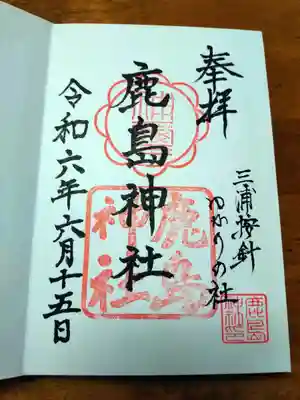 奉拝
三浦按針
ゆかりの社
鹿島神社
令和六年六月十五日
鹿島
神社
鹿島
社印